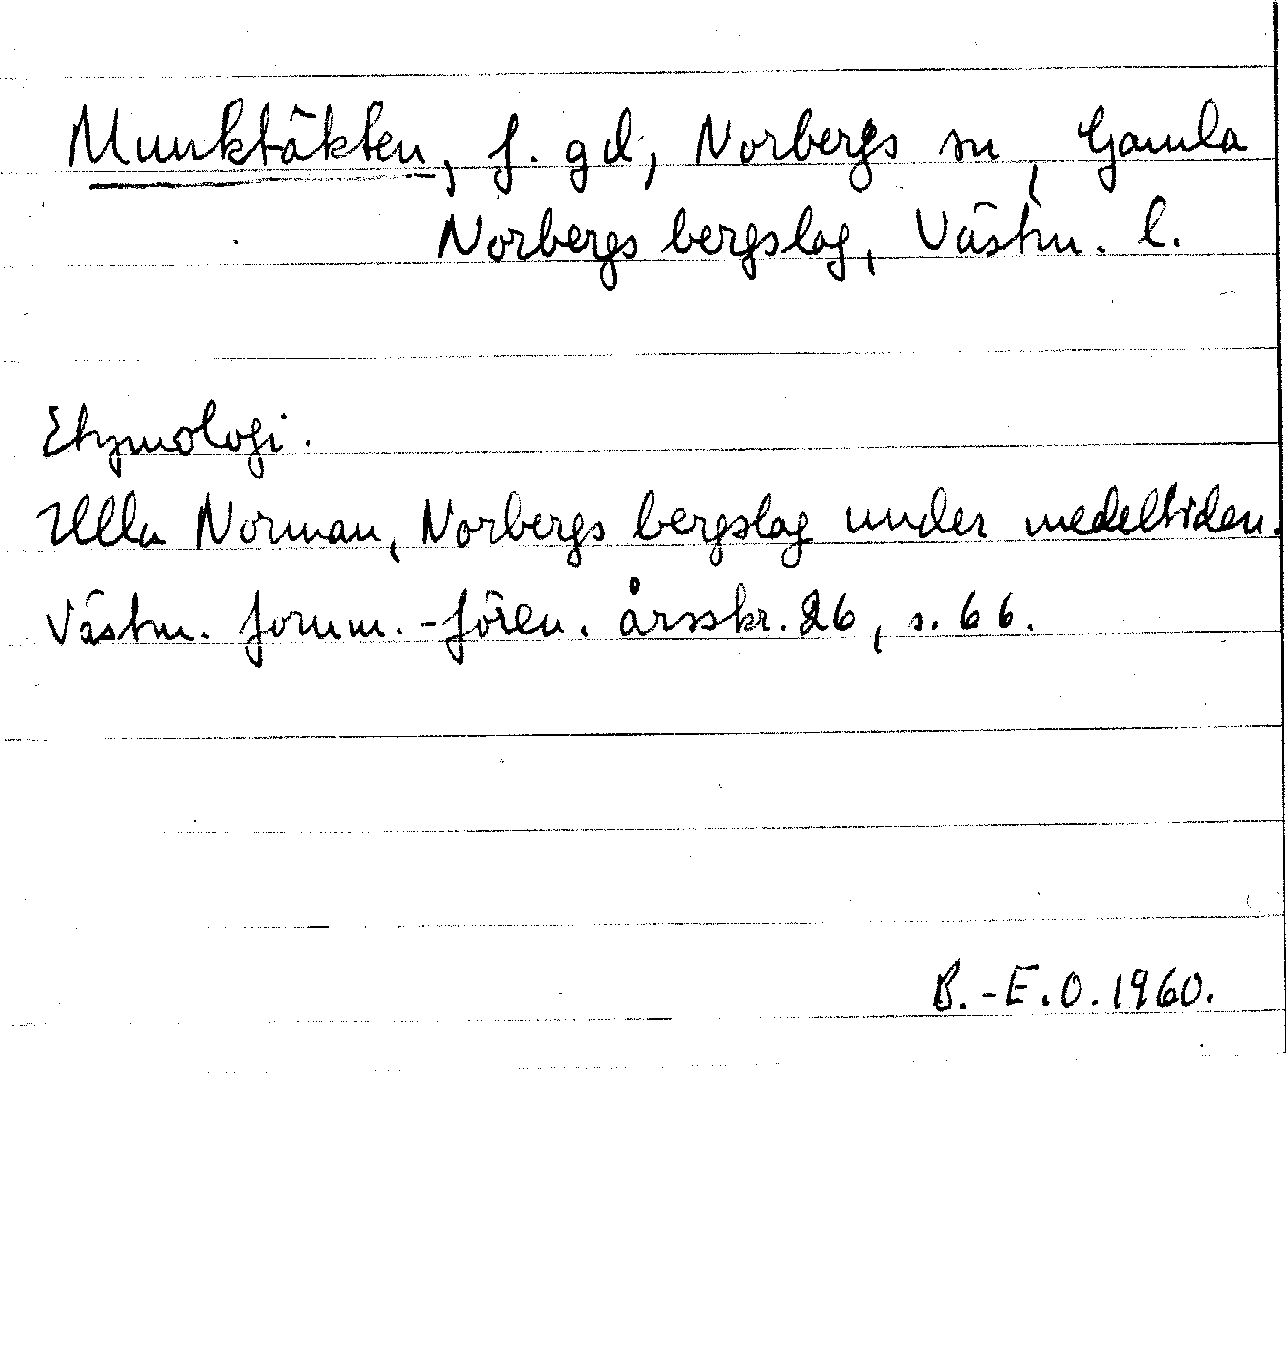 Munktäkten, f. gd, Norbergs sn, Gamla
Norbergs bergslag, Västm. l.
Etymologi.
Ulla Norman, Norbergs bergslag under medeltiden.
Västm. fornm.-fören. årsskr. 26, s. 66.
B.-E.O. 1960.